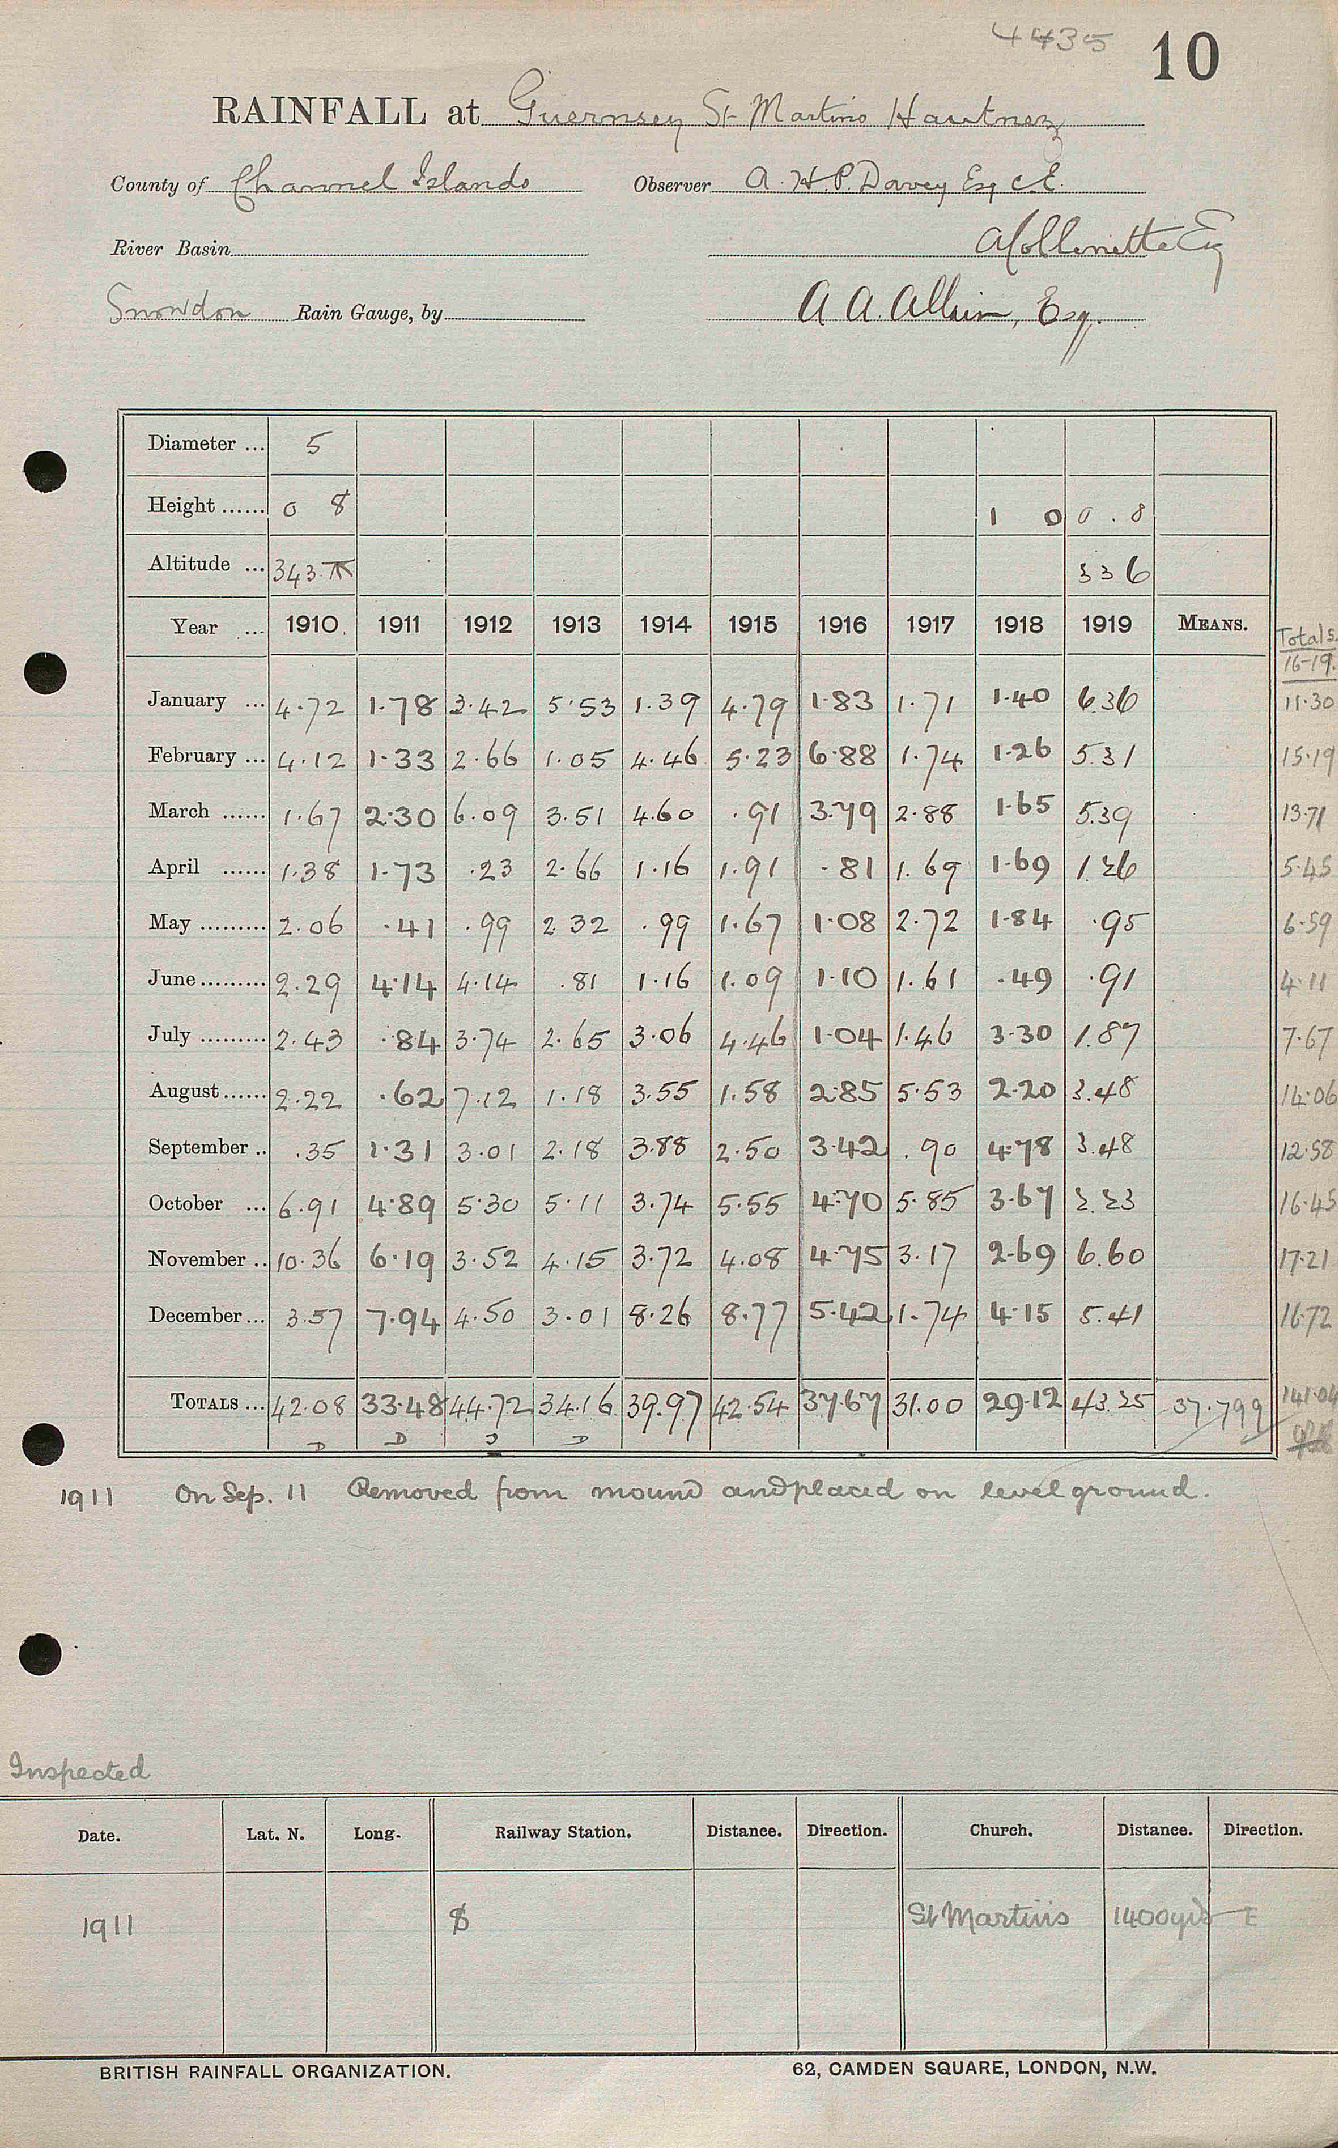 4435 10
RAINFALL at Guernsey St Martins Hautnez
County of Channel Islands Observer A. H. P. Davey Esq C.E.
River Basin A Collenette Esq
Snowdon Rain Gauge, by A. A. Allun, Esq.
Diameter ... 5
Height ...... 0 8 1 0 0.8
Altitude ... 343 336
Year ... 1910 1911 1912 1913 1914 1915 1916 1917 1918 1919 MEANS. Totals 16-19.
January ... 4.72 1.78 3.42 5.53 1.39 4.79 1.83 1.71 1.40 6.36 11.30
February ... 4.12 1.33 2.66 1.05 4.46 5.23 6.88 1.74 1.26 5.31 15.19
March ...... 1.67 2.30 6.09 3.51 4.60 .91 3.79 2.88 1.65 5.39 13.71
April ...... 1.38 1.73 .23 2.66 1.16 1.91 .81 1.69 1.69 1.26 5.45
May ......... 2.06 .41 .99 2.32 .99 1.67 1.08 2.72 1.84 .95 6.59
June ......... 2.29 4.14 4.14 .81 1.16 1.09 1.10 1.61 .49 .91 4.11
July ......... 2.43 .84 3.74 2.65 3.06 4.46 1.04 1.46 3.30 1.87 7.67
August ...... 2.22 .62 7.12 1.18 3.55 1.58 2.85 5.53 2.20 3.48 14.06
September .. .35 1.31 3.01 2.18 3.88 2.50 3.42 .90 4.78 3.48 12.58
October ... 6.91 4.89 5.30 5.11 3.74 5.55 4.70 5.85 3.67 2.23 16.45
November .. 10.36 6.19 3.52 4.15 3.72 4.08 4.75 3.17 2.69 6.60 17.21
December ... 3.57 7.94 4.50 3.01 8.26 8.77 5.42 1.74 4.15 5.41 16.72
TOTALS ... 42.08 33.48 44.72 34.16 39.97 42.54 37.67 31.00 29.12 43.25 37.799 141.04
D D D D
1911 On Sep. 11 Removed from mound and placed on level ground.
Inspected
Date. Lat. N. Long. Railway Station. Distance. Direction. Church. Distance. Direction.
1911 St Martins 1400 yds E
BRITISH RAINFALL ORGANIZATION. 62, CAMDEN SQUARE, LONDON, N.W.